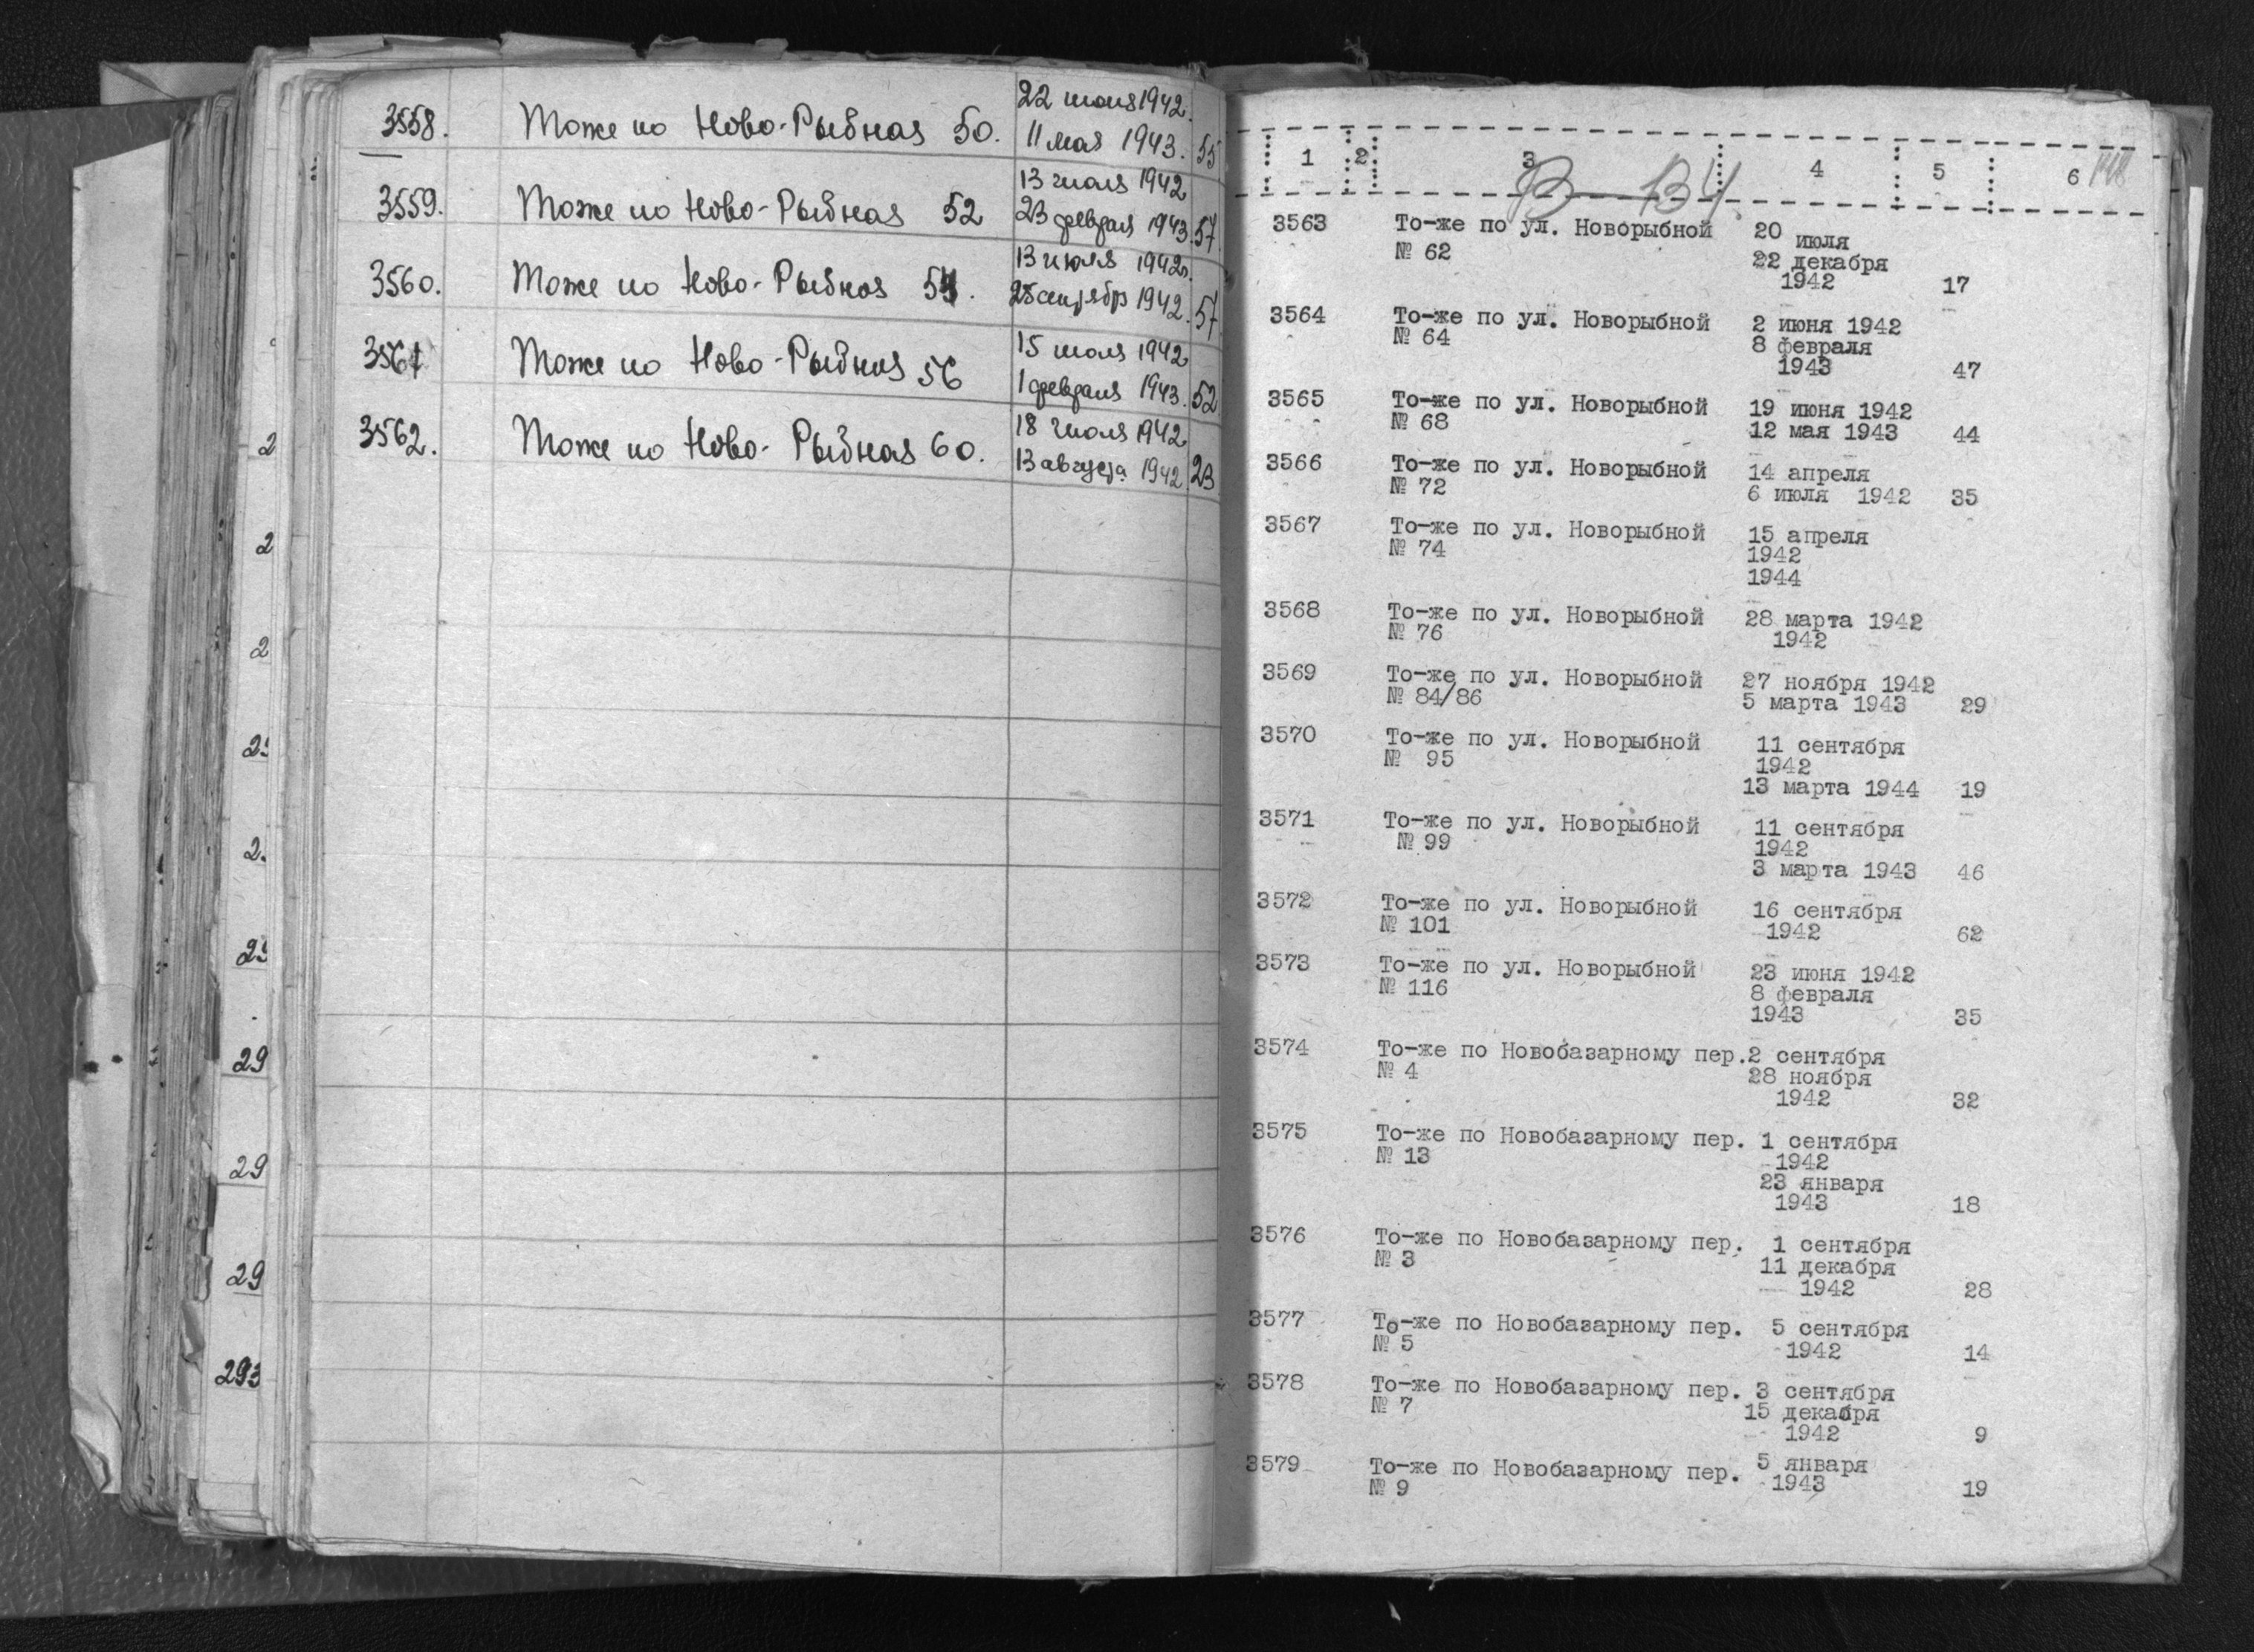 3558. Тоже по Ново-Рыбная 50. 22 июня 1942.
11 мая 1943. 55
3559. Тоже по Ново-Рыбная 52 13 июля 1942
23 февраля 1943. 57
3560. Тоже по Ново-Рыбная 13 июля 1942
1942. 57
3561 Тоже по Ново-Рыбная 56 15 июля 1942
1 февраля 1943. 52
3562. Тоже по Ново-Рыбная 60. 18 июля 1942
13 августа 1942 23
2
2
2
29
29
29
293
1 2 3 4 5 6
3563 То-же по ул. Новорыбной 20 июля
№ 62 22 декабря
1942 17
3564 То-же по ул. Новорыбной 2 июня 1942
№ 64 8 февраля
1943 47
3565 То-же по ул. Новорыбной 19 июня 1942
№ 68 12 мая 1943 44
3566 То-же по ул. Новорыбной 14 апреля
№ 72 6 июля 1942 35
3567 То-же по ул. Новорыбной 15 апреля
№ 74 1942
1944
3568 То-же по ул. Новорыбной 28 марта 1942
№ 76 1942
3569 То-же по ул. Новорыбной 27 ноября 1942
№ 84/86 5 марта 1943 29
3570 То-же по ул. Новорыбной 11 сентября
№ 95 1942
13 марта 1944 19
3571 То-же по ул. Новорыбной 11 сентября
№ 99 1942
3 марта 1943 46
3572 То-же по ул. Новорыбной 16 сентября
№ 101 1942 62
3573 То-же по ул. Новорыбной 23 июня 1942
№ 116 8 февраля
1943 35
3574 То-же по Новобазарному пер. 2 сентября
№ 4 28 ноября
1942 32
3575 То-же по Новобазарному пер. 1 сентября
№ 13 1942
23 января
1943 18
3576 То-же по Новобазарному пер. 1 сентября
№ 3 11 декабря
1942 28
3577 То-же по Новобазарному пер. 5 сентября
№ 5 1942 14
3578 То-же по Новобазарному пер. 3 сентября
№ 7 15 декабря
1942 9
3579 То-же по Новобазарному пер. 5 января
№ 9 1943 19